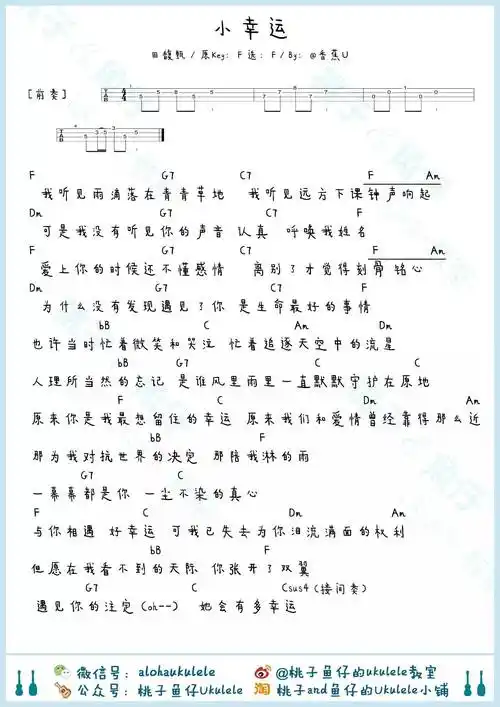 小幸运
田馥甄 / 原Key: F 选: F / By: @香蕉U
[前奏]
F G7 C7 F Am
我听见雨滴落在青青草地 我听见远方下课钟声响起
Dm G7 C7 F
可是我没有听见你的声音 认真 呼唤我姓名
F G7 C7 F Am
爱上你的时候还不懂感情 离别了才觉得刻骨 铭心
Dm G7 C7 F
为什么没有发现遇见了你 是生命最好的事情
bB C Am Dm
也许当时忙着微笑和哭泣 忙着追逐天空中的流星
bB G7 C C
人理所当然的忘记 是谁风里雨里一直默默守护在原地
F C Dm Am
原来你是我最想留住的幸运 原来我们和爱情曾经靠得那么近
bB F
那为我对抗世界的决定 那陪我淋的雨
G7 C
一幕幕都是你 一尘不染的真心
F C Dm Am
与你相遇 好幸运 可我已失去为你泪流满面的权利
bB F
但愿在我看不到的天际 你张开了双翼
G7 C Csus4 (接间奏)
遇见你的注定 (oh--) 她会有多幸运
微信号: alohaukulele @桃子鱼仔的ukulele教室
公众号: 桃子鱼仔Ukulele 淘 桃子and鱼仔的Ukulele小铺